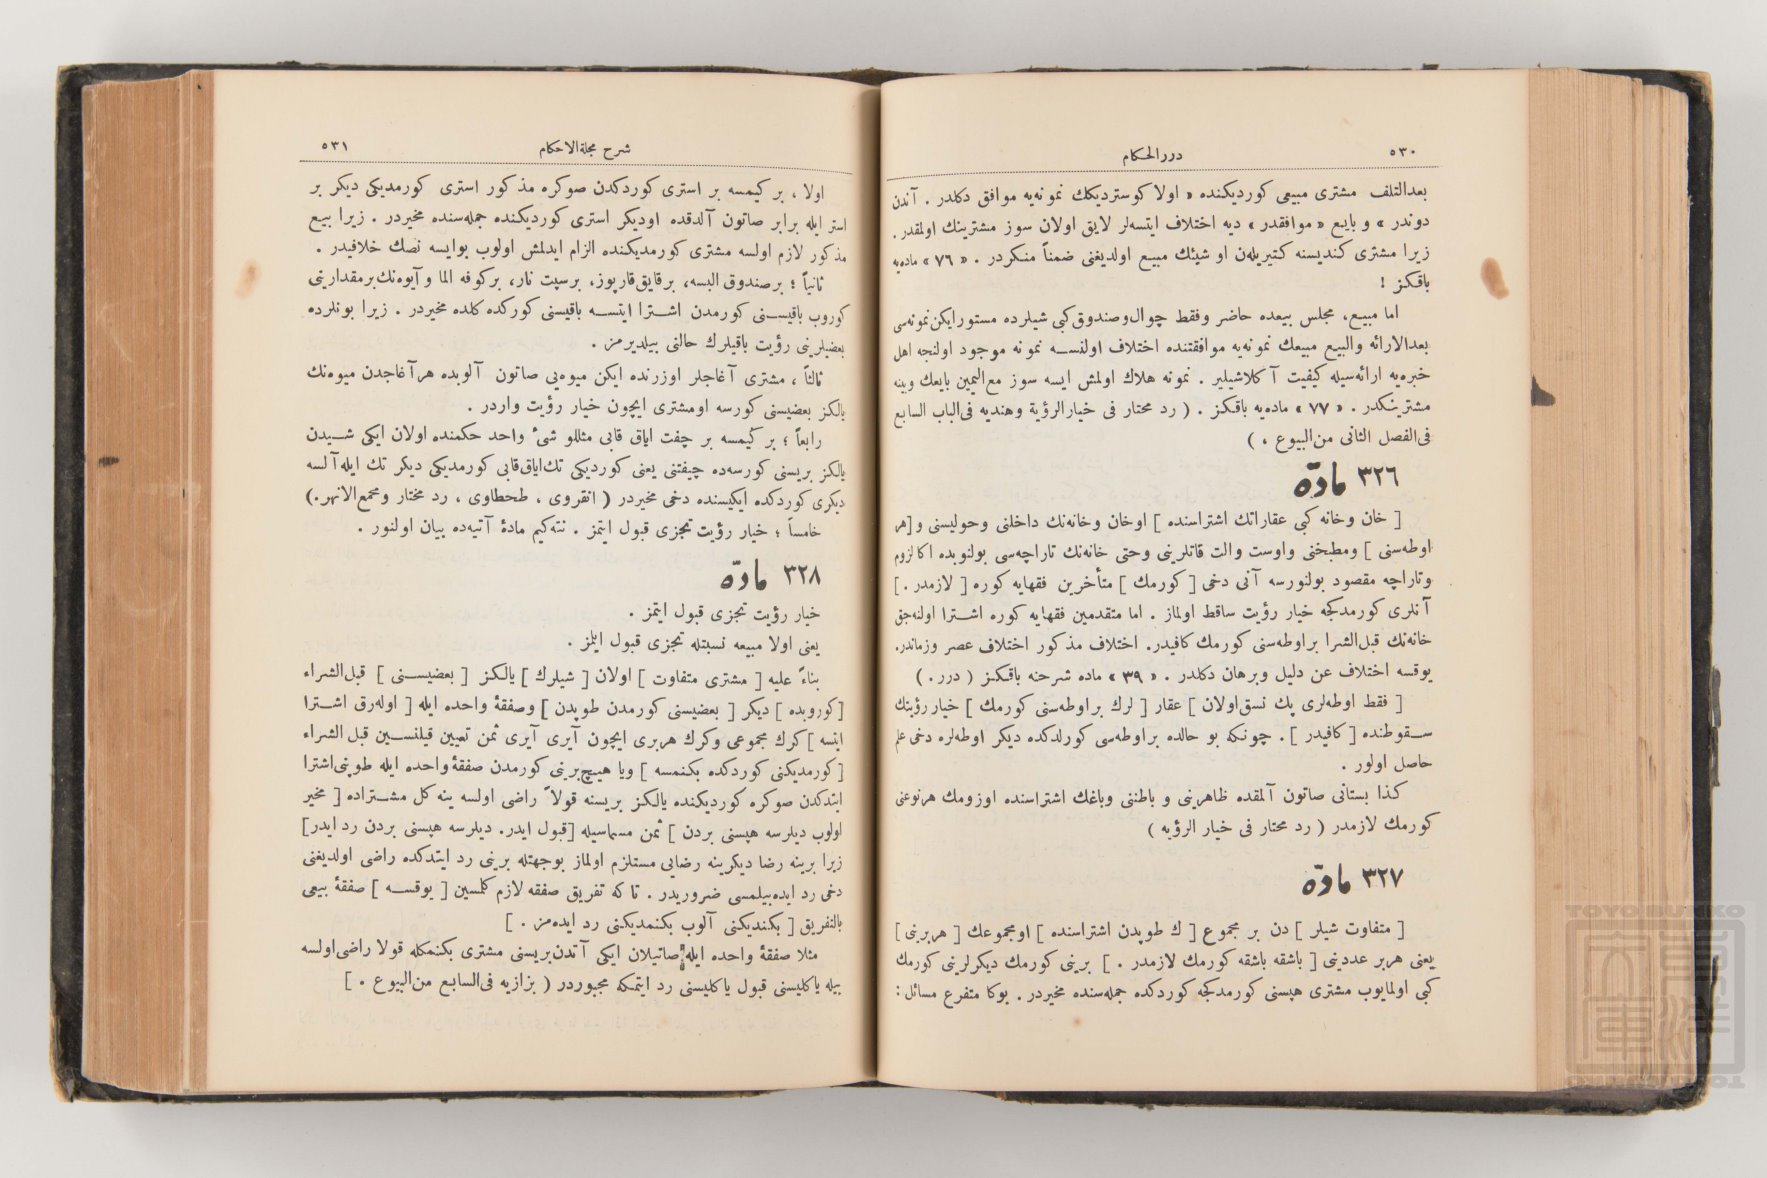 ٥٣٠
دررالحكام
بعدالتلف مشترى مبيعى كورديكنده « اولا كوسترديكك نمونه‌يه موافق دكلدر . آندن
دوندر » و بايع « موافقدر » ديه اختلاف ايتسه‌لر لايق اولان سوز مشترينك اولمقدر .
زيرا مشترى كنديسنه كتيريلن او شيئك مبيع اولديغنى ضمناً منكردر . « ٧٦ » ماده‌يه
باقكز !
اما مبيع، مجلس بيعده حاضر وفقط چوال وصندوق كبى شيلرده مستور ايكن نمونه‌سى
بعدالارائه والبيع مبيعك نمونه‌يه موافقتنده اختلاف اولنسه نمونه موجود اولنجه اهل
خبره‌يه ارائه‌سيله كيفيت آكلاشيلير . نمونه هلاك اولمش ايسه سوز مع‌اليمين بايعك وبينه
مشترينكدر . « ٧٧ » ماده‌يه باقكز . ( رد محتار فى خيارالرؤية وهنديه فى الباب السابع
فى الفصل الثانى من البيوع . )
٣٢٦ مادّه
[ خان وخانه كبى عقاراتك اشتراسنده ] اوخان وخانه‌نك داخلنى وحوليسنى و[هر
اوطه‌سنى ] ومطبخنى واوست والت قاتلرينى وحتى خانه‌نك تاراچه‌سى بولنوبده اكا لزوم
وتاراچه مقصود بولنورسه آنى دخى [ كورمك ] متأخرين فقهايه كوره [ لازمدر . ]
آنلرى كورمدكجه خيار رؤيت ساقط اولماز . اما متقدمين فقهايه كوره اشترا اولنه‌جق
خانه‌نك قبل‌الشرا براوطه‌سنى كورمك كافيدر. اختلاف مذكور اختلاف عصر وزماندر.
يوقسه اختلاف عن دليل وبرهان دكلدر . « ٣٩ » ماده شرحنه باقكز ( درر . )
[ فقط اوطه‌لرى پك نسق اولان ] عقار [ لرك براوطه‌سنى كورمك ] خيار رؤيتك
سقوطنده [ كافيدر ] . چونكه بو حالده براوطه‌سى كورلدكده ديكر اوطه‌لره دخى علم
حاصل اولور .
كذا بستانى صاتون آلمقده ظاهرينى و باطننى وباغك اشتراسنده اوزومك هرنوعنى
كورمك لازمدر ( رد محتار فى خيار الرؤيه )
٣٢٧ مادّه
[ متفاوت شيلر ] دن بر مجموع [ ك طوپدن اشتراسنده ] اومجموعك [ هربرينى ]
يعنى هربر عددينى [ باشقه باشقه كورمك لازمدر . ] برينى كورمك ديكرلرينى كورمك
كبى اولمايوب مشترى هپسنى كورمدكجه كوردكده جمله‌سنده مخيردر . بوكا متفرع مسائل :
شرح مجلةالاحكام
٥٣١
اولا ، بر كيمسه بر استرى كوردكدن صوكره مذكور استرى كورمديكى ديكر بر
استر ايله برابر صاتون آلدقده اوديكر استرى كورديكنده جمله‌سنده مخيردر . زيرا بيع
مذكور لازم اولسه مشترى كورمديكنده الزام ايدلمش اولوب بوايسه نصك خلافيدر .
ثانياً ؛ برصندوق البسه، برقايق قارپوز، برسپت نار، بركوفه الما وآيوه‌نك برمقدارينى
كوروب باقيسنى كورمدن اشترا ايتسه باقيسنى كوركده كلده مخيردر . زيرا بونلرده
بعضيلرينى رؤيت باقيلرك حالنى بيلديرمز .
ثالثاً ، مشترى آغاجلر اوزرنده ايكن ميوه‌يى صاتون آلوبده هرآغاجدن ميوه‌نك
يالكز بعضيسنى كورسه اومشترى ايچون خيار رؤيت واردر .
رابعاً ؛ بر كيمسه بر چفت اياق قابى مثللو شئ واحد حكمنده اولان ايكى شيدن
يالكز بريسنى كورسه‌ده چيفتنى يعنى كورديكى تك اياق قابى كورمديكى ديكر تك ايله آلسه
ديكرى كوردكده ايكيسنده دخى مخيردر ( انقروى ، طحطاوى ، رد مختار ومجمع الانهر.)
خامساً ؛ خيار رؤيت تجزى قبول ايتمز . نته‌كيم مادۀ آتيه‌ده بيان اولنور .
٣٢٨ مادّه
خيار رؤيت تجزى قبول ايتمز .
يعنى اولا مبيعه نسبتله تجزى قبول ايلمز .
بناءً عليه [ مشترى متفاوت ] اولان [ شيلرك ] يالكز [ بعضيسنى ] قبل‌الشراء
[كوروبده ] ديكر [ بعضيسنى كورمدن طوپدن ] وصفقۀ واحده ايله [ اوله‌رق اشترا
ايتسه ] كرك مجموعى وكرك هربرى ايچون آيرى آيرى ثمن تعيين قيلنسين قبل الشراء
[كورمديكنى كوردكده بكنمسه ] ويا هيچ‌برينى كورمدن صفقۀ واحده ايله طوپنى اشترا
ايتدكدن صوكره كورديكنده يالكز بريسنه قولاً راضى اولسه ينه كل مشتراده [ مخير
اولوب ديلرسه هپسنى بردن ] ثمن مسماسيله [قبول ايدر. ديلرسه هپسنى بردن رد ايدر]
زيرا برينه رضا ديكرينه رضايى مستلزم اولماز بوجهتله برينى رد ايتدكده راضى اولديغنى
دخى رد ايده‌بيلمسى ضروريدر . تا كه تفريق صفقه لازم كلمسين [ يوقسه ] صفقۀ بيعى
بالتفريق [ بكنديكنى آلوب بكنمديكنى رد ايده‌مز . ]
مثلا صفقۀ واحده ايله صاتيلان ايكى آتدن بريسنى مشترى بكنمكله قولا راضى اولسه
بيله ياكليسنى قبول ياكليسنى رد ايتمكه مجبوردر ( بزازيه فى السابع من البيوع . ]
TOYO BUNKO